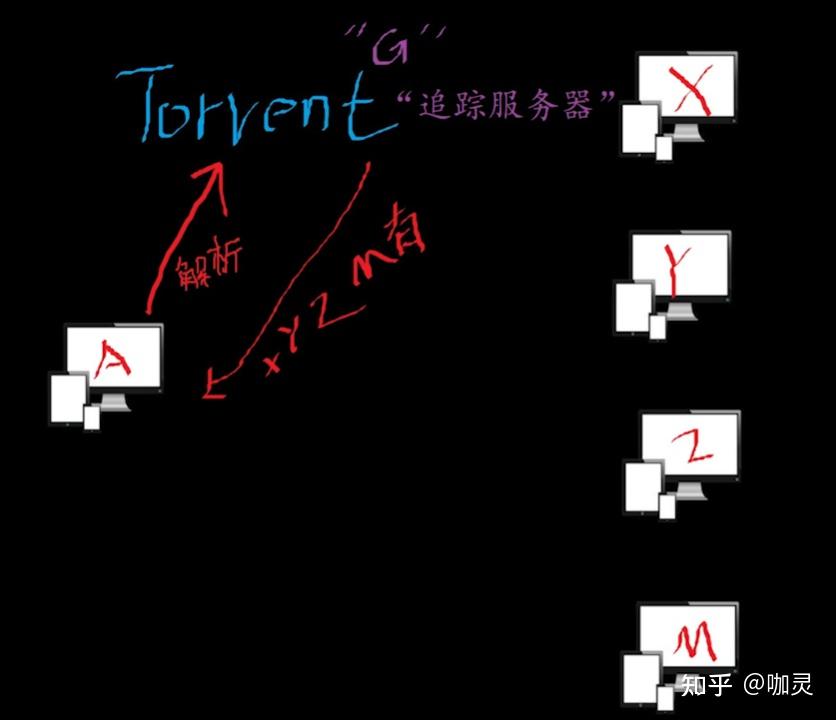 "G"
Torrent
"追踪服务器"
X
解析
XYZM有
Y
A
Z
M
知乎 @咖灵